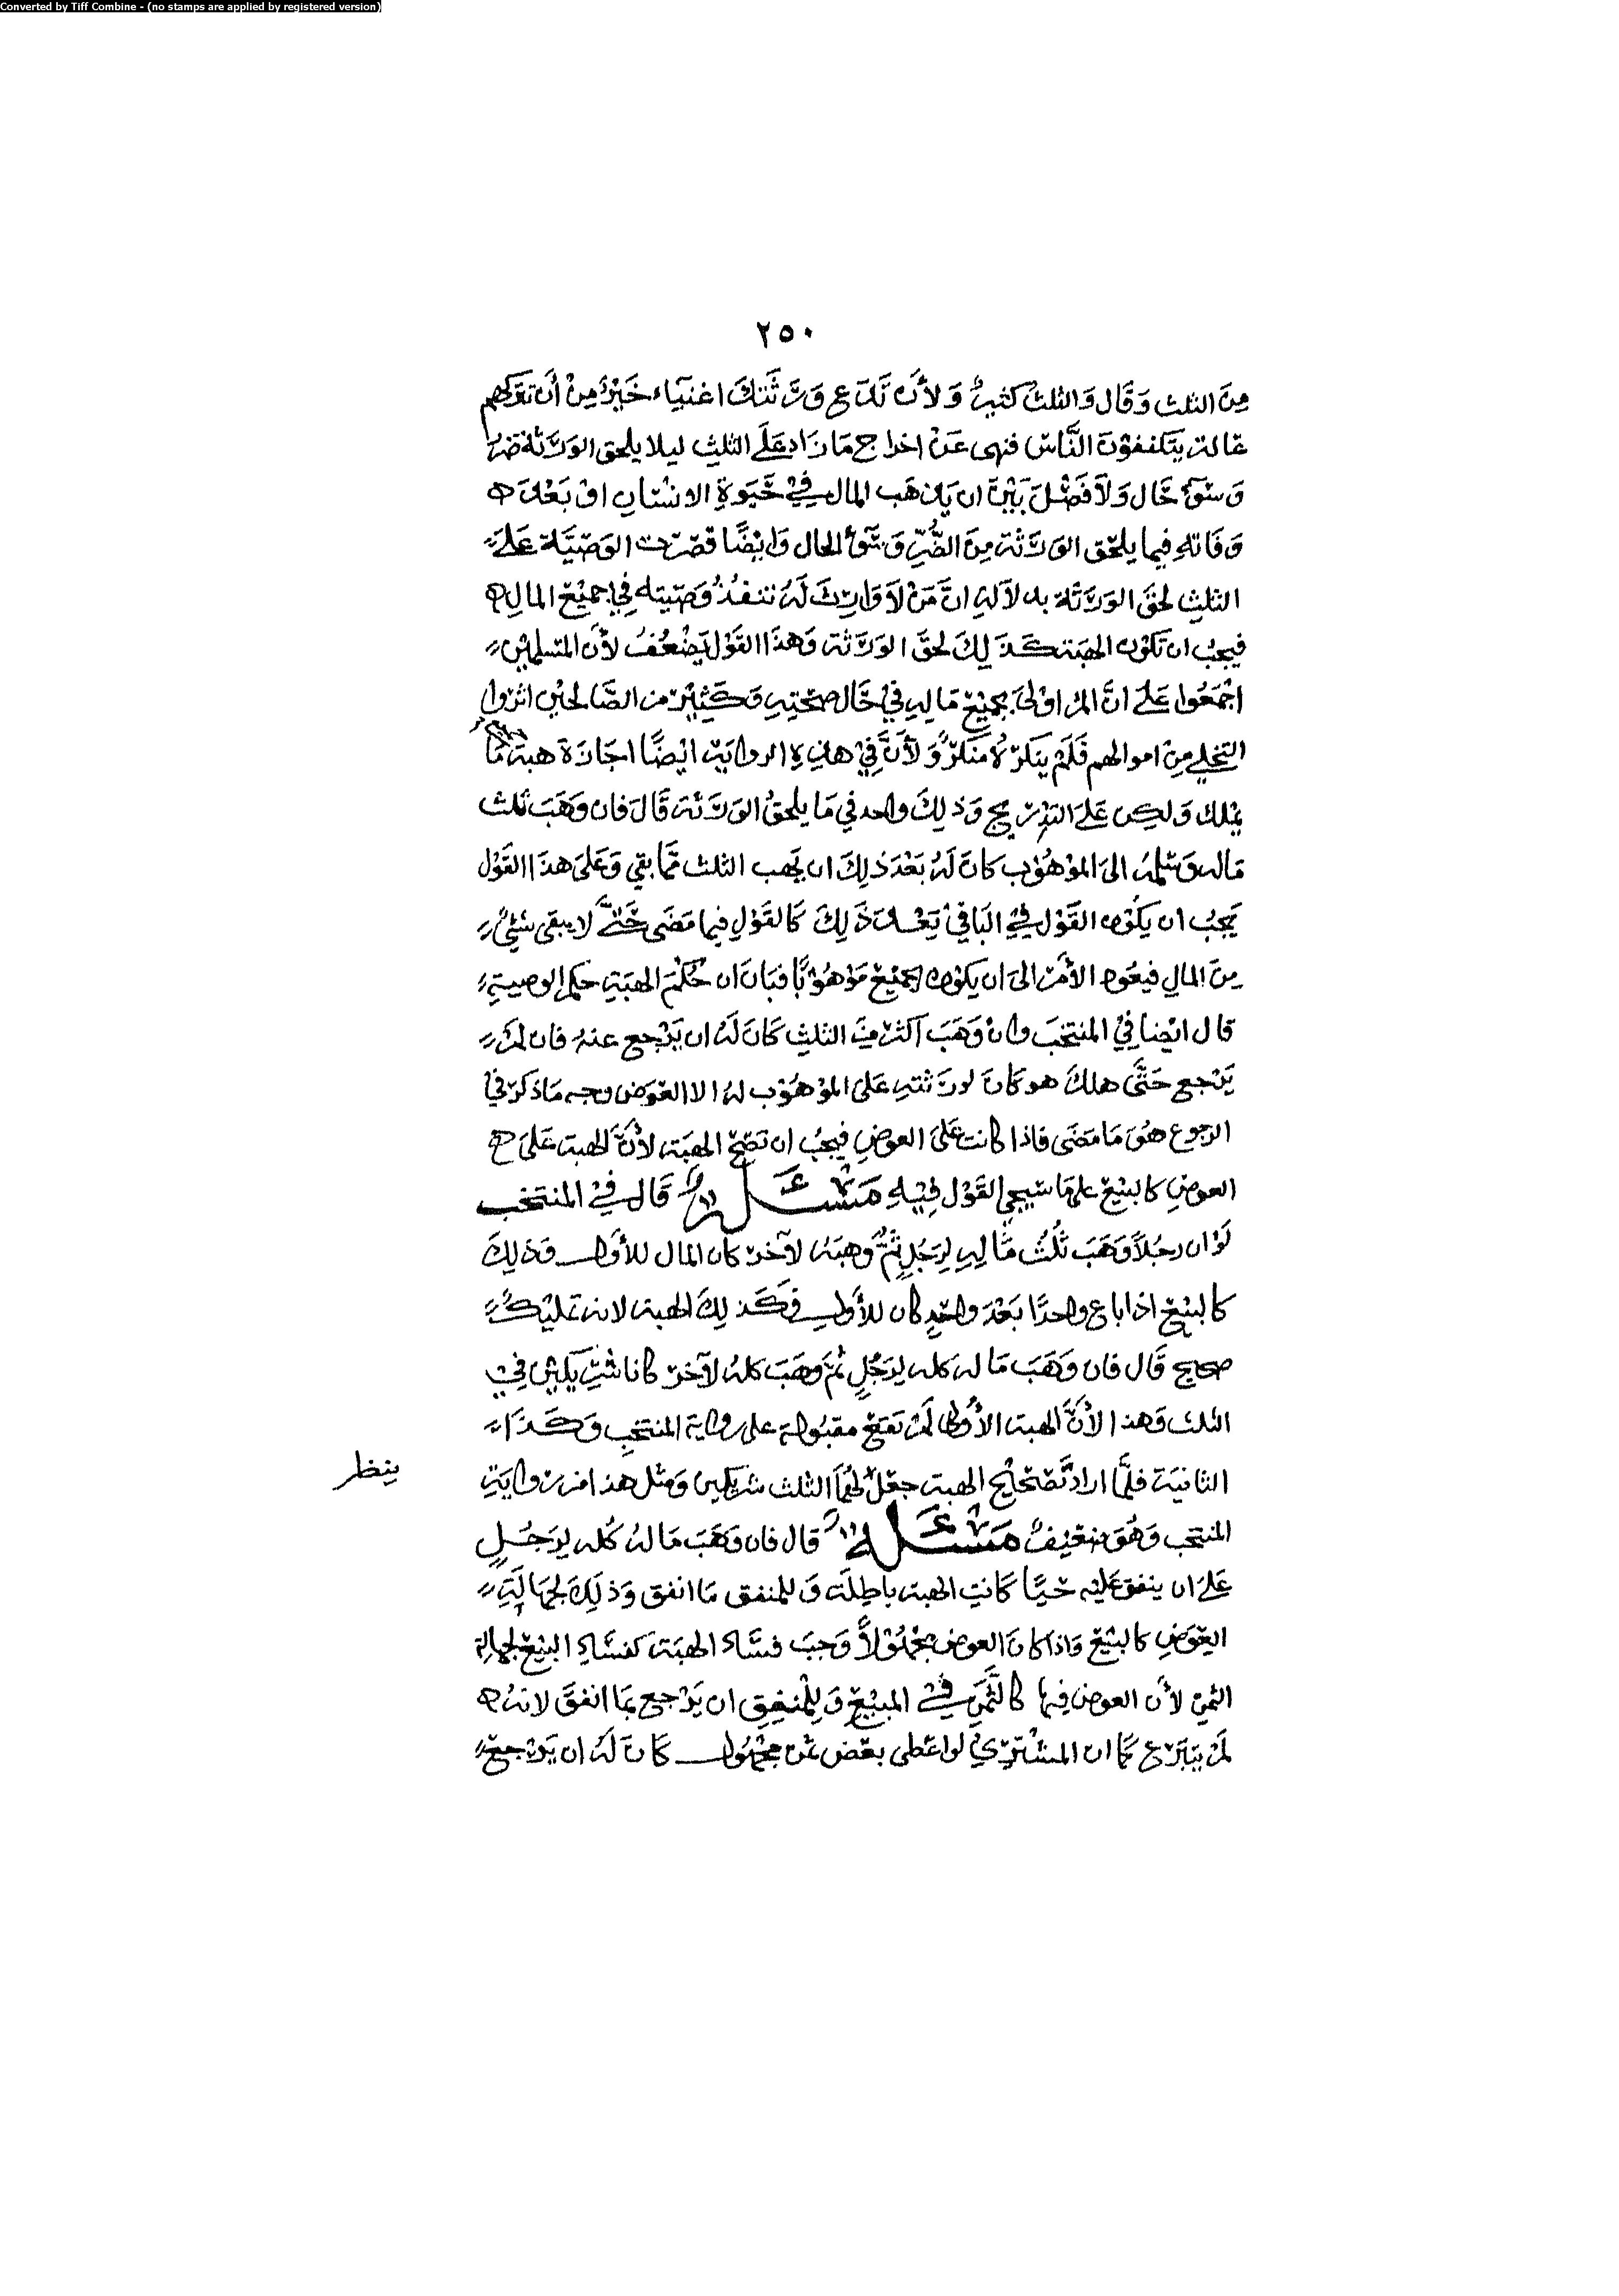 Converted by Tiff Combine - (no stamps are applied by registered version)
٢٥٠
مِنَ الثلث وَقَال وَالثلث كثيرٌ وَلأَن تَدَع وَرَثَتَكَ اغنيَاء خَيرٌ مِنْ أَن تتركهم
عَالة يتكففوْنَ النَّاسَ فنهى عَنْ اخراج مَا زَاد عَلَى الثلثِ ليلا يلحق الوَرَثَة ضر
وَسُوءُ حَال وَلاَ فَصْلَ بَيْنَ ان يَذهَب المال فِيْ حَيَوةِ الانسَانِ اوْ بَعْدَ
وَفَاتهِ فيما يلحَق الوَرَثَة مِنَ الضُّرِّ وَسُوءُ الحال وَايْضًا قصّرت الوَصِيَّة عَلَى
الثلثِ لحقّ الوَرَثَة بدلالةِ انَّ مَنْ لاَ وَارِثَ لَهُ تنفُذُ وَصيَّته فِي جميْع المالِ
فيجبُ ان تكَوْن الهبَة كَذَلِكَ لحقّ الوَرَثة وَهَذَا القَوْل يَضْعُفُ لأَن المسلمِيْن
اجْمَعُوا عَلَى انَّ المرَ اوْلَى بجمِيْع مَالِهِ فيْ حَال صحّتِهِ وَكَثِيْر من الصَّالحيْن اثرَوا
التخلي مِنْ اموالهم فَلَمْ ينكرْهُ منكرٌ وَلأَنَّ فِيْ هذِهِ الروايَة ايْضًا اجَازَة هبَة مَا
يملك وَلكِن عَلَى التدْرِيج وَذلِكَ واحد في مَا يلحقُ الوَرَثَة قَالَ فان وَهَبَ ثلث
مَاله وَسَلمهُ الى الموْهُوْب كانَ لَهُ بَعْدَ ذلِكَ ان يَهب الثلث ممّا بقي وَعَلى هذَا القَوْل
يَجبُ ان يَكوْن القَوْل فِي البَاقيْ بَعْدَ ذَلِكَ كالقَوْلِ فيما مَضَى حَتّى لا يبقى شَيْءٌ
مِنَ المالِ فيعُود الأَمْر الى ان يكوْن الجميْع مَوْهُوْبًا فبَان ان حُكْمَ الهبَةِ حكم الوصيةِ
قال ايْضا فِيْ المنتخَب وانْ وَهَبَ اكثرَ مِنَ الثلثِ كَانَ لَهُ ان يَرْجع عنهُ فان لَمْ
يَرْجع حَتَّى هلكَ هو كَانَ لورَثتهِ عَلى الموْهُوْب لهُ الا العِوَض وجه مَا ذكر فيْ
الرجوع هوَ مَا مضَى فاذا كانت عَلَى العوضِ فيجبُ ان تصَحّ الهبَة لأَنَّ الهبة عَلَى
العوضِ كالبيْع على مَا سَيجي القَوْل فيْهِ مَسْئَلَة قَالَ فيْ المنتخب
لَوْ ان رجُلاً وَهَبَ ثُلُثَ مَالِهِ لِرَجُلٍ ثُمَّ وهبَهُ لآخر كان المال للأَول وَذلِكَ
كالبيْع اذا باع واحدًا بَعْدَ واحِدٍ كان للأَول فَكَذلِكَ الهبة لانه تمليْكٌ
صحيح قَال فان وَهَبَ مَا لهُ كله لِرَجُلٍ ثمَّ وَهَبَ كلهُ لآخر كانا شَرِيكيْن فِيْ
الثلث وَهذا لأَنَّ الهبة الأُولى لَمْ تقعْ مقبُولة على رواية المنتخبِ وَكَذَا
الثانيَة فلَمَّا ارادَ تصْحيْح الهبة جعَل لهُمَا الثلث شريكين وَمثل هذا من روايَةِ
ينظر
المنتخب وَهُوَ ضعَيْفٌ مَسْئَلَة قَال فان وَهَبَ مَا لهُ كُله لِرَجُلٍ
عَلَى ان ينفق عَليْه حَيًّا كَانتِ الهبة باطِلَة وَللمنفق مَا انفق وَذلِكَ لجهَالَةِ
العِوَضِ كالبيْع وَاذا كانَ العوض مجْهُوْلاً وَجبَ فسَاد الهبَة كفسَادِ البيْع لجهالة
الثمنِ لأَن العوض فيها كالثَّمَنِ فِيْ المبيْع وَلِلْمُنفِقِ ان يَرْجع بمَا انفقَ لانهُ
لَمْ يَتبرَّع كمَا ان المشتَرِيْ لو اعطى بعْض ثمن مجْهُول كانَ لَهُ ان يَرْجعَ